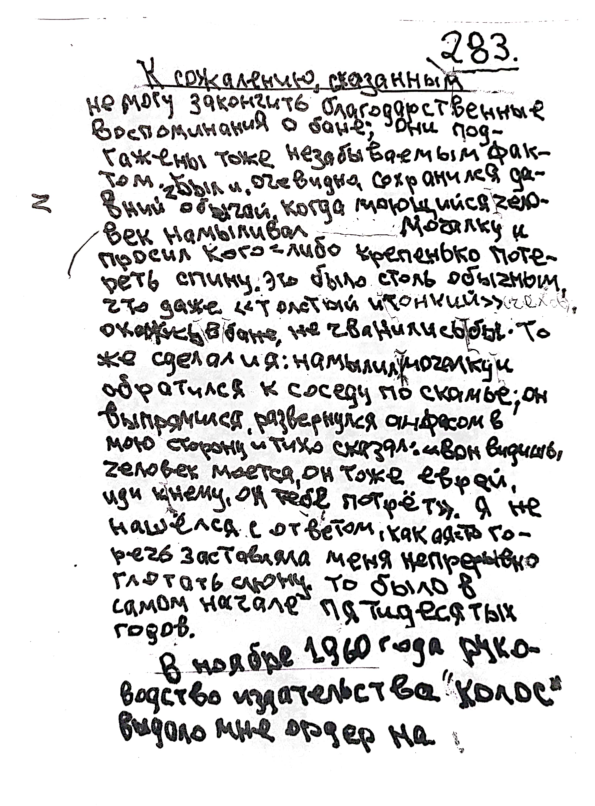 283.
К сожалению, сказанным
не могу закончить благодарственные
воспоминания о бане; они под-
гажены тоже незабываемым фак-
том. Был и, очевидно, сохранился да-
вний обычай, когда моющийся чело-
век намыливал мочалку и
просил кого-либо крепенько поте-
реть спину. Это было столь обычным,
что даже «толстый и тонкий» Чехова,
окажись в бане, не чванились бы. То
же сделал и я: намылил мочалку и
обратился к соседу по скамье; он
выпрямился, развернулся анфасом в
мою сторону и тихо сказал: «вон видишь,
человек моется, он тоже еврей,
иди к нему, он тебе потрёт». Я не
нашёлся с ответом, какая-то го-
речь заставляла меня непрерывно
глотать слюну. То было в
самом начале пятидесятых
годов.
В ноябре 1960 года руко-
водство издательства "Колос"
выдало мне ордер на